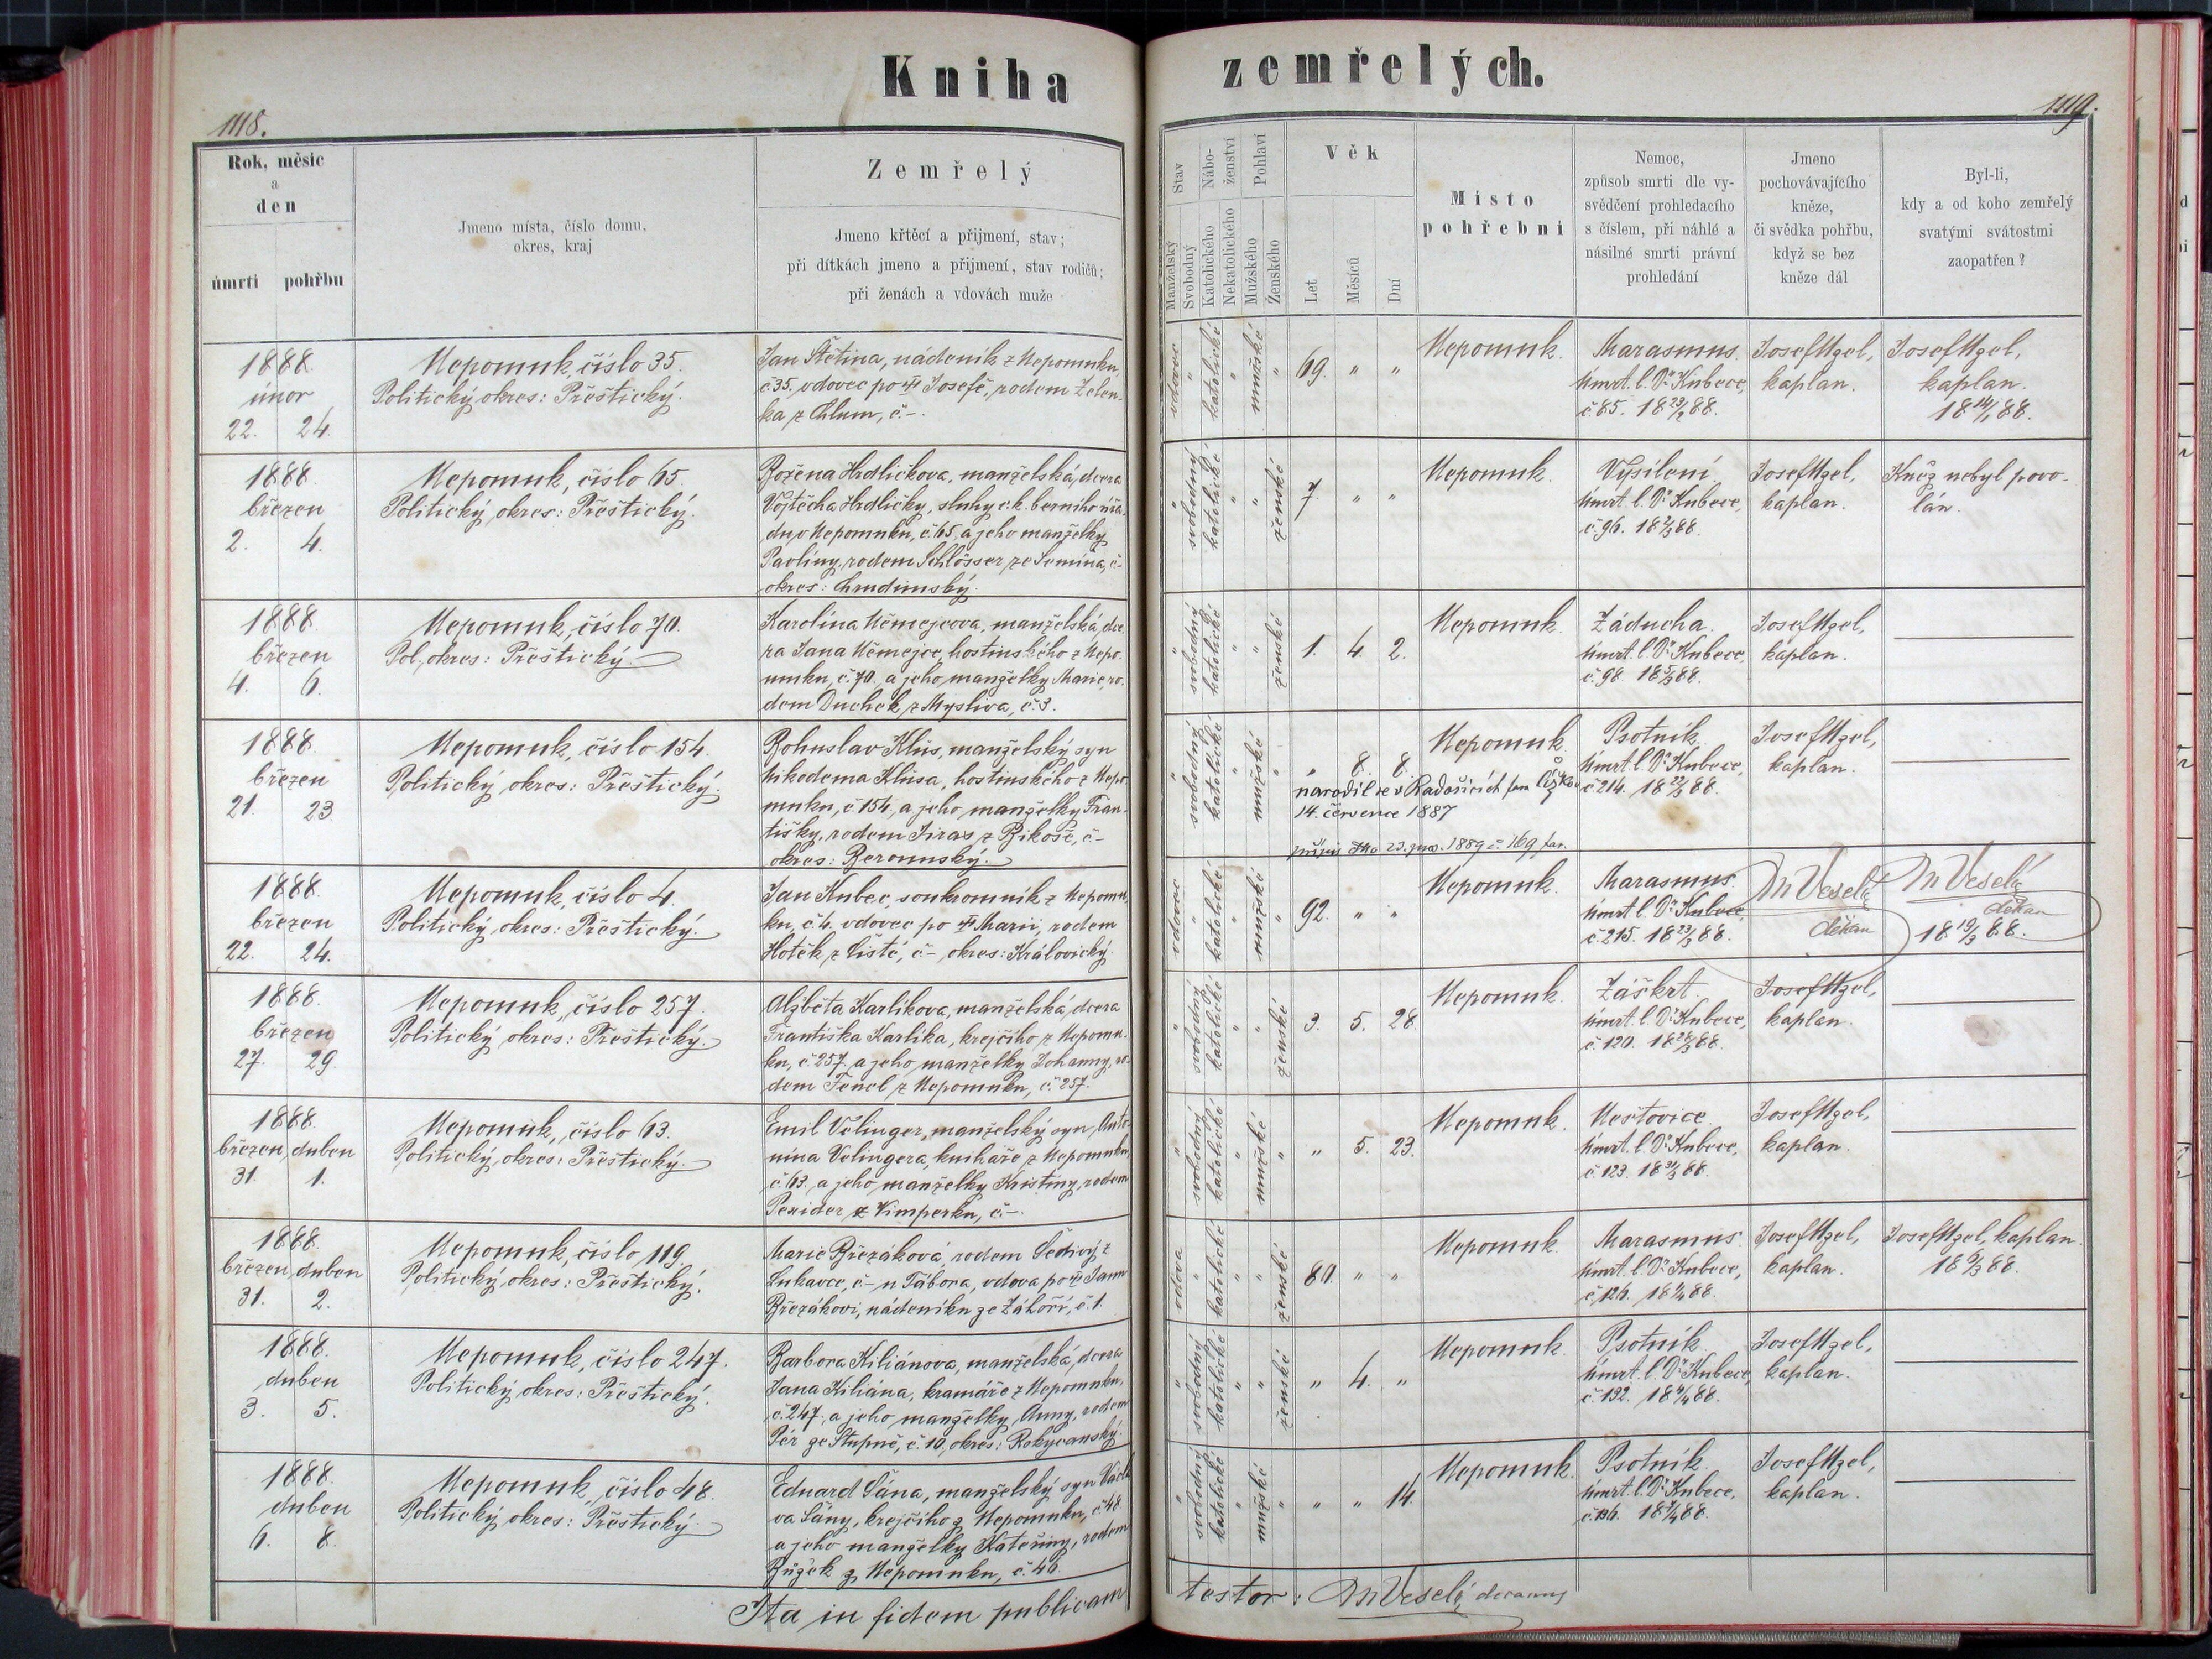 Kniha zemřelých.
1118.
1119.
Rok, měsíc
a
den
úmrtí
pohřbu
Jmeno místa, číslo domu,
okres, kraj
Zemřelý
Jmeno křtěcí a přijmení, stav;
při dítkách jmeno a přijmení, stav rodičů;
při ženách a vdovách muže
Stav
Manželský
Svobodný
Nábo-
ženství
Katolického
Nekatolického
Pohlaví
Mužského
Ženského
Věk
Let
Měsíců
Dní
Místo
pohřební
Nemoc,
způsob smrti dle vy-
svědčení prohledacího
s číslem, při náhlé a
násilné smrti právní
prohledání
Jmeno
pochovávajícího
kněze,
či svědka pohřbu,
když se bez
kněze dál
Byl-li,
kdy a od koho zemřelý
svatými svátostmi
zaopatřen?
1888.
únor
22. 24.
Nepomuk, číslo 35.
Politický okres: Přeštický.
Jan Štětina, nádeník z Nepomuku,
č. 35, vdovec po Josefě, rodem Zelen-
ka z Chlum, č.-.
vdovec " katolické " mužské " 69. " "
Nepomuk.
Marasmus.
úmrt. l. Dr Kubece,
č. 85. 18 23/2 88.
Josef Uzel,
kaplan.
Josef Uzel,
kaplan.
18 14/1 88.
1888.
březen
2. 4.
Nepomuk, číslo 65.
Politický okres: Přeštický.
Božena Hrdličkova, manželská dcera
Vojtěcha Hrdličky, sluhy c. k. berního úřa-
du v Nepomuku, č. 65, a jeho manželky
Pavlíny, rodem Schlösser ze Semína, č.-
okres: Chrudimský.
" svobodný katolické " " ženské 7. " "
Nepomuk.
Vysílení
úmrt. l. Dr Kubece,
č. 96. 18 2/3 88.
Josef Uzel,
kaplan.
Kněz nebyl povo-
lán.
1888.
březen
4. 6.
Nepomuk, číslo 70.
Pol. okres: Přeštický.
Karolína Němejcova, manželská dce-
ra Jana Němejce, hostinského z Nepo-
muku, č. 70. a jeho manželky Marie, ro-
dem Duchek z Myslíva, č. 3.
" svobodný katolické " " ženské 1. 4. 2.
Nepomuk.
Záducha.
úmrt. l. Dr Kubece,
č. 98. 18 5/3 88.
Josef Uzel,
kaplan.
1888.
březen
21. 23.
Nepomuk, číslo 154.
Politický okres: Přeštický.
Bohuslav Klůs, manželský syn
Nikodema Klůsa, hostinského z Nepo-
muku, č. 154, a jeho manželky Fran-
tišky, rodem Jiras z Bikoše, č.-
okres: Berounský.
" svobodný katolické " mužské " " 8. 8.
narodil se v Radošicích
14. července 1887
Nepomuk.
Psotník.
úmrt. l. Dr Kubece,
č. 214. 18 22/3 88.
Josef Uzel,
kaplan.
1888.
březen
22. 24.
Nepomuk, číslo 4.
Politický okres: Přeštický.
Jan Kubec, soukromník z Nepomu-
ku, č. 4. vdovec po Marii, rodem
Hotěk z Čisté, č.-, okres: Královický.
vdovec " katolické " mužské " 92. " "
Nepomuk.
Marasmus.
úmrt. l. Dr Kubece,
č. 215. 18 23/3 88.
M Veselý
děkan
M Veselý
děkan
18 19/3 88.
1888.
březen
27. 29.
Nepomuk, číslo 257.
Politický okres: Přeštický.
Alžběta Karlíkova, manželská dcera
Františka Karlíka, krejčího z Nepomu-
ku, č. 257. a jeho manželky Johanny, ro-
dem Fencl z Nepomuku, č. 257.
" svobodný katolické " " ženské 3. 5. 28.
Nepomuk.
Záškrt.
úmrt. l. Dr Kubece,
č. 120. 18 28/3 88.
Josef Uzel,
kaplan.
1888.
březen duben
31. 1.
Nepomuk, číslo 63.
Politický okres: Přeštický.
Emil Velinger, manželský syn Anto-
nína Velingera, knihaře z Nepomuku,
č. 63, a jeho manželky Kristiny, rodem
Perider z Vimperku, č.-.
" svobodný katolické " mužské " " 5. 23.
Nepomuk.
Neštovice.
úmrt. l. Dr Kubece,
č. 123. 18 31/3 88.
Josef Uzel,
kaplan.
1888.
březen duben
31. 2.
Nepomuk, číslo 119.
Politický okres: Přeštický.
Marie Březáková, rodem Šedivý z
Lukavce, č.- u Tábora, vdova po Janu
Březákovi, nádeníku ze Záhoří, č. 1.
vdova " katolické " " ženské 80. " "
Nepomuk.
Marasmus.
úmrt. l. Dr Kubece,
č. 126. 18 1/4 88.
Josef Uzel,
kaplan.
Josef Uzel, kaplan.
18 6/3 88.
1888.
duben
3. 5.
Nepomuk, číslo 247.
Politický okres: Přeštický.
Barbora Kiliánova, manželská dcera
Jana Kiliána, kramáře z Nepomuku,
č. 247, a jeho manželky Anny, rodem
Pér ze Stupně, č. 10, okres: Rokycanský.
" svobodný katolické " " ženské " 4. "
Nepomuk.
Psotník.
úmrt. l. Dr Kubece,
č. 132. 18 4/4 88.
Josef Uzel,
kaplan.
1888.
duben
6. 8.
Nepomuk, číslo 48.
Politický okres: Přeštický.
Eduard Šána, manželský syn Václa-
va Šány, krejčího z Nepomuku, č. 48
a jeho manželky Kateřiny, rodem
Bůžek z Nepomuku, č. 46.
" svobodný katolické " mužské " " " 14.
Nepomuk.
Psotník.
úmrt. l. Dr Kubece,
č. 136. 18 7/4 88.
Josef Uzel,
kaplan.
Ita in fidem publicam testor: M Veselý, decanus